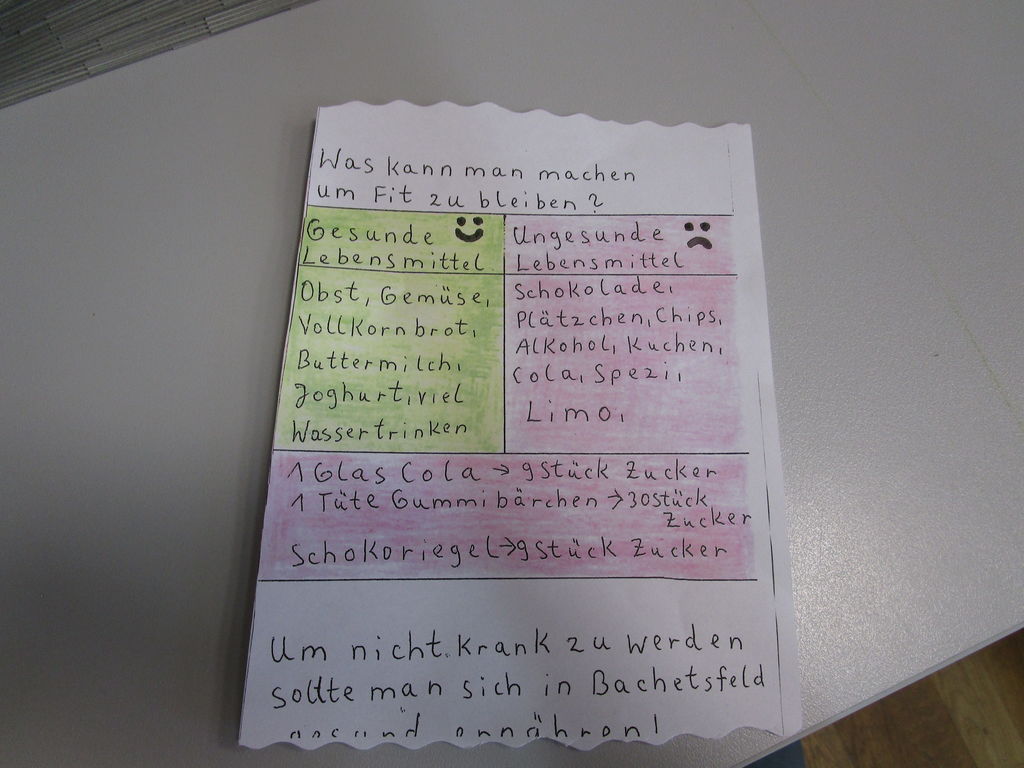 Was kann man machen
um Fit zu bleiben?
Gesunde
Lebensmittel
Obst, Gemüse,
Vollkornbrot,
Buttermilch,
Joghurt, viel
Wassertrinken
Ungesunde
Lebensmittel
Schokolade,
Plätzchen, Chips,
Alkohol, Kuchen,
Cola, Spezi,
Limo,
1 Glas Cola → 9 Stück Zucker
1 Tüte Gummibärchen → 30 Stück
Zucker
Schokoriegel → 9 Stück Zucker
Um nicht krank zu werden
sollte man sich in Bachetsfeld
gesund ernähren!